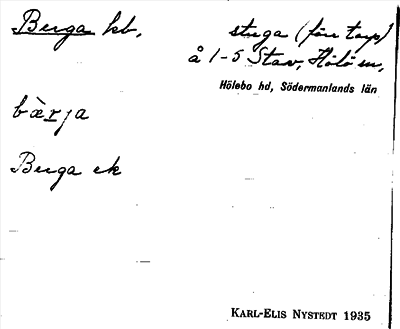 Berga kb, stuga (förr torp)
å 1-5 Stav, Hölö sn,
Hölebo hd, Södermanlands län
bæ̀rja
Berga ek
KARL-ELIS NYSTEDT 1935